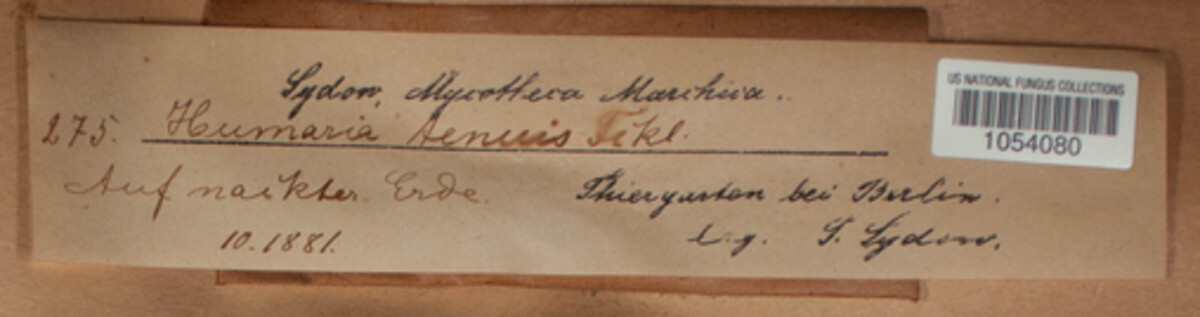 Sydow, Mycotheca Marchica.
275. Humaria tenuis Fckl.
Auf nackter Erde. Thiergarten bei Berlin.
10.1881. leg. P. Sydow.
US NATIONAL FUNGUS COLLECTIONS
1054080